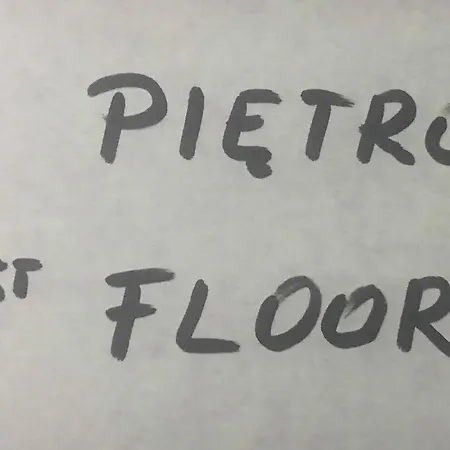 PIĘTRO
ST FLOOR